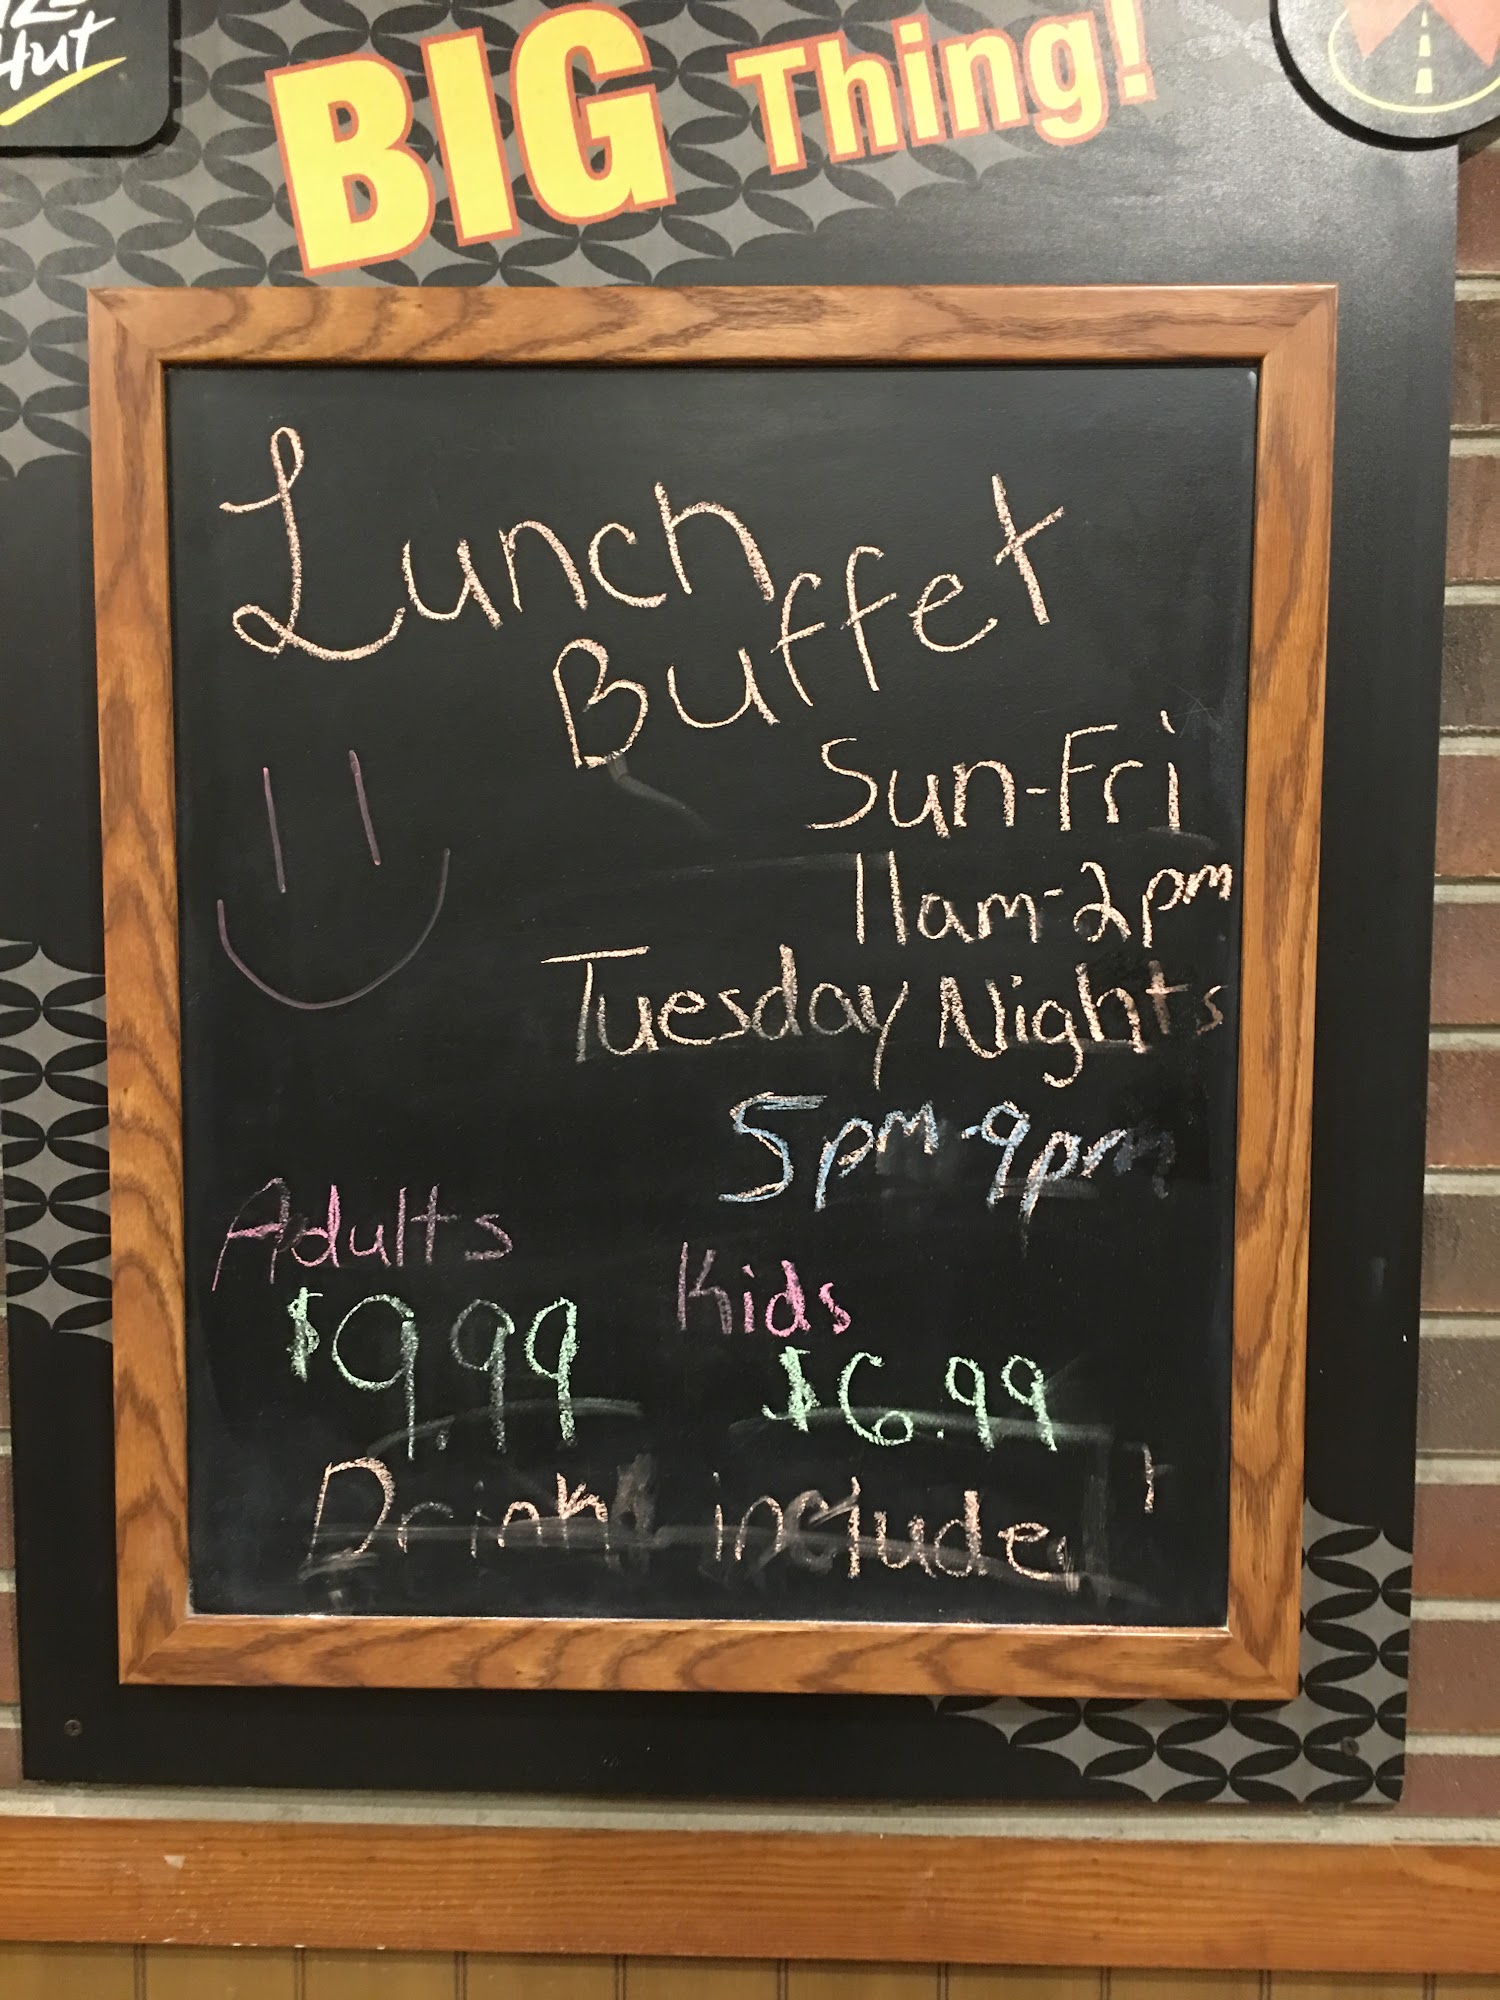 Hut
BIG Thing!
Lunch
Buffet
Sun-Fri
11am-2pm
Tuesday Nights
5pm-9pm
Adults
$9.99
Kids
$6.99
Drink include